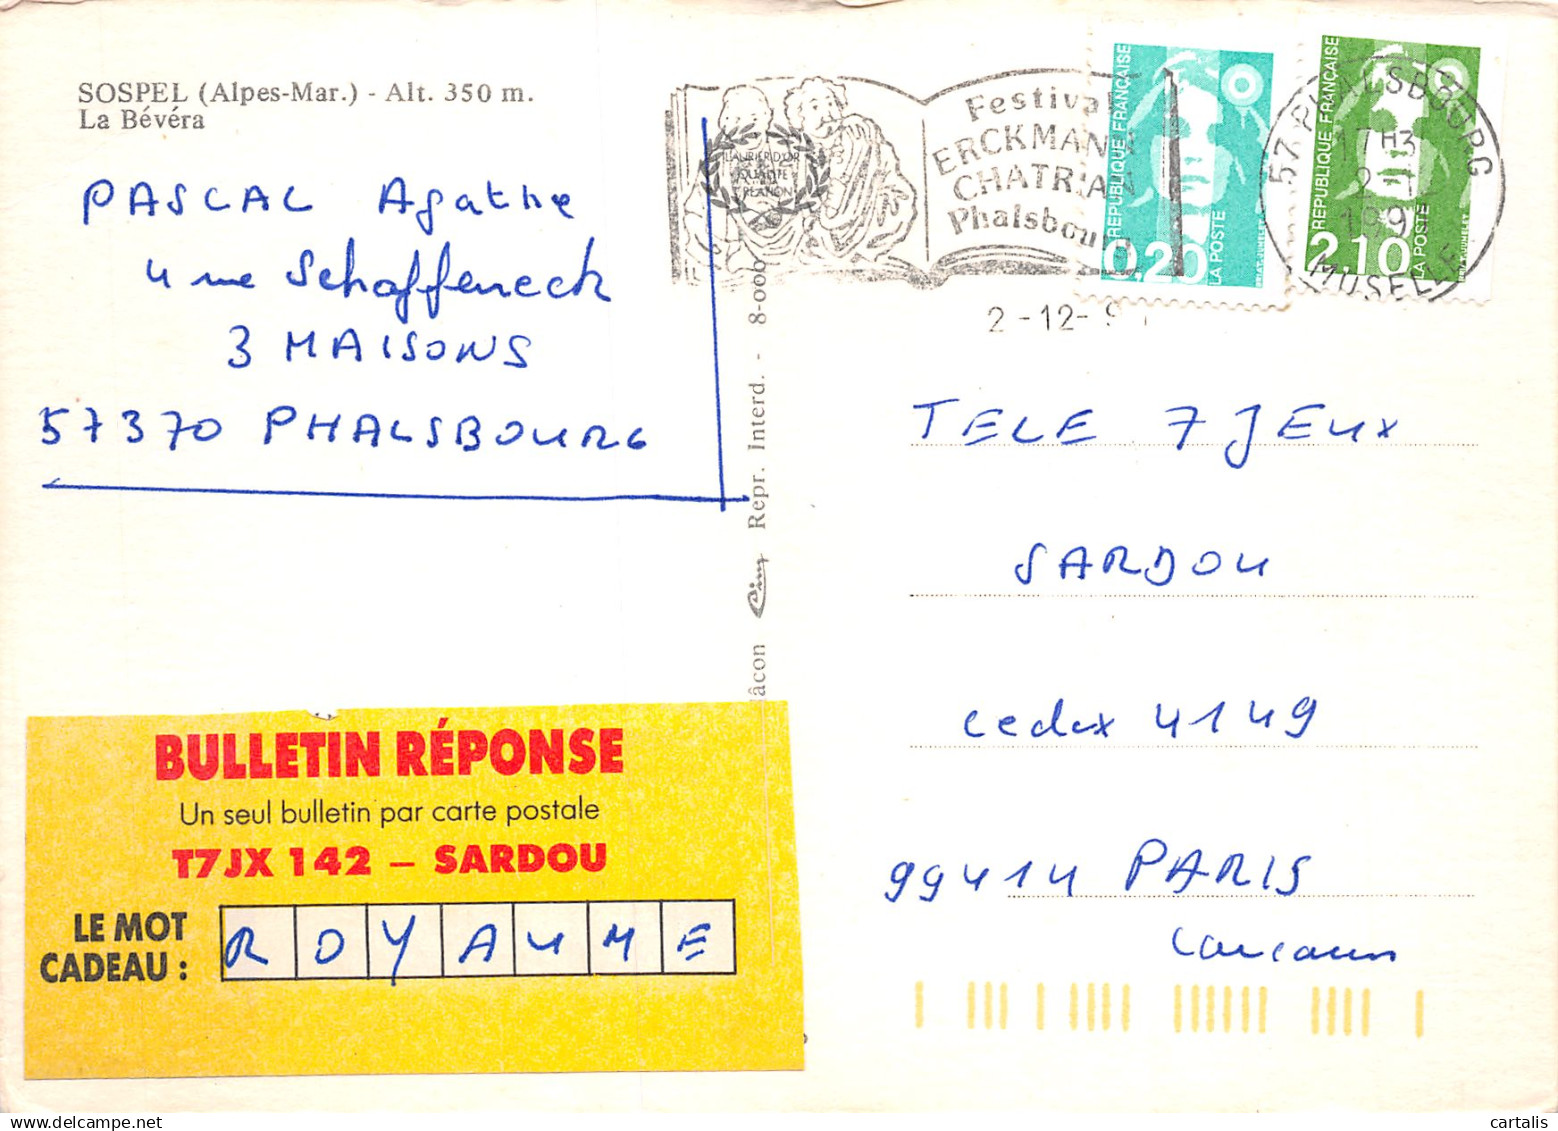 SOSPEL (Alpes-Mar.) - Alt. 350 m.
La Bévéra
PASCAL Agathe
4 rue Schaffeneck
3 MAISONS
57370 PHALSBOURG
LAURIER D'OR
QUALITÉ
Festival
ERCKMANN
CHATRIAN
Phalsbourg
2-12-9
RÉPUBLIQUE FRANÇAISE
0,20
LA POSTE
RÉPUBLIQUE FRANÇAISE
2,10
LA POSTE
57 PHALSBOURG
17H3
MOSELLE
Repr. Interd. - 8-006
TELE 7 JEUX
SARDOU
cedex 4149
99414 PARIS
Concours
BULLETIN RÉPONSE
Un seul bulletin par carte postale
T7JX 142 – SARDOU
LE MOT
CADEAU :
ROYAUME
cartalis